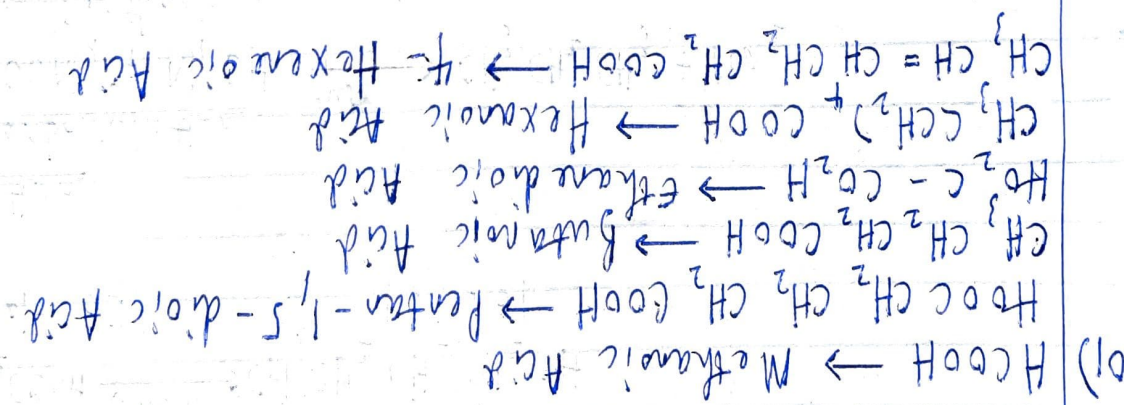 01) HCOOH → Methanoic Acid
HOOC CH₂ CH₂ CH₂ COOH → Pentan-1,5-dioic Acid.
CH₃ CH₂ CH₂ COOH → Butanoic Acid
HO₂C - CO₂H → Ethanedioic Acid
CH₃ (CH₂)₄ COOH → Hexanoic Acid
CH₃ CH = CH CH₂ CH₂ COOH → 4-Hexenoic Acid